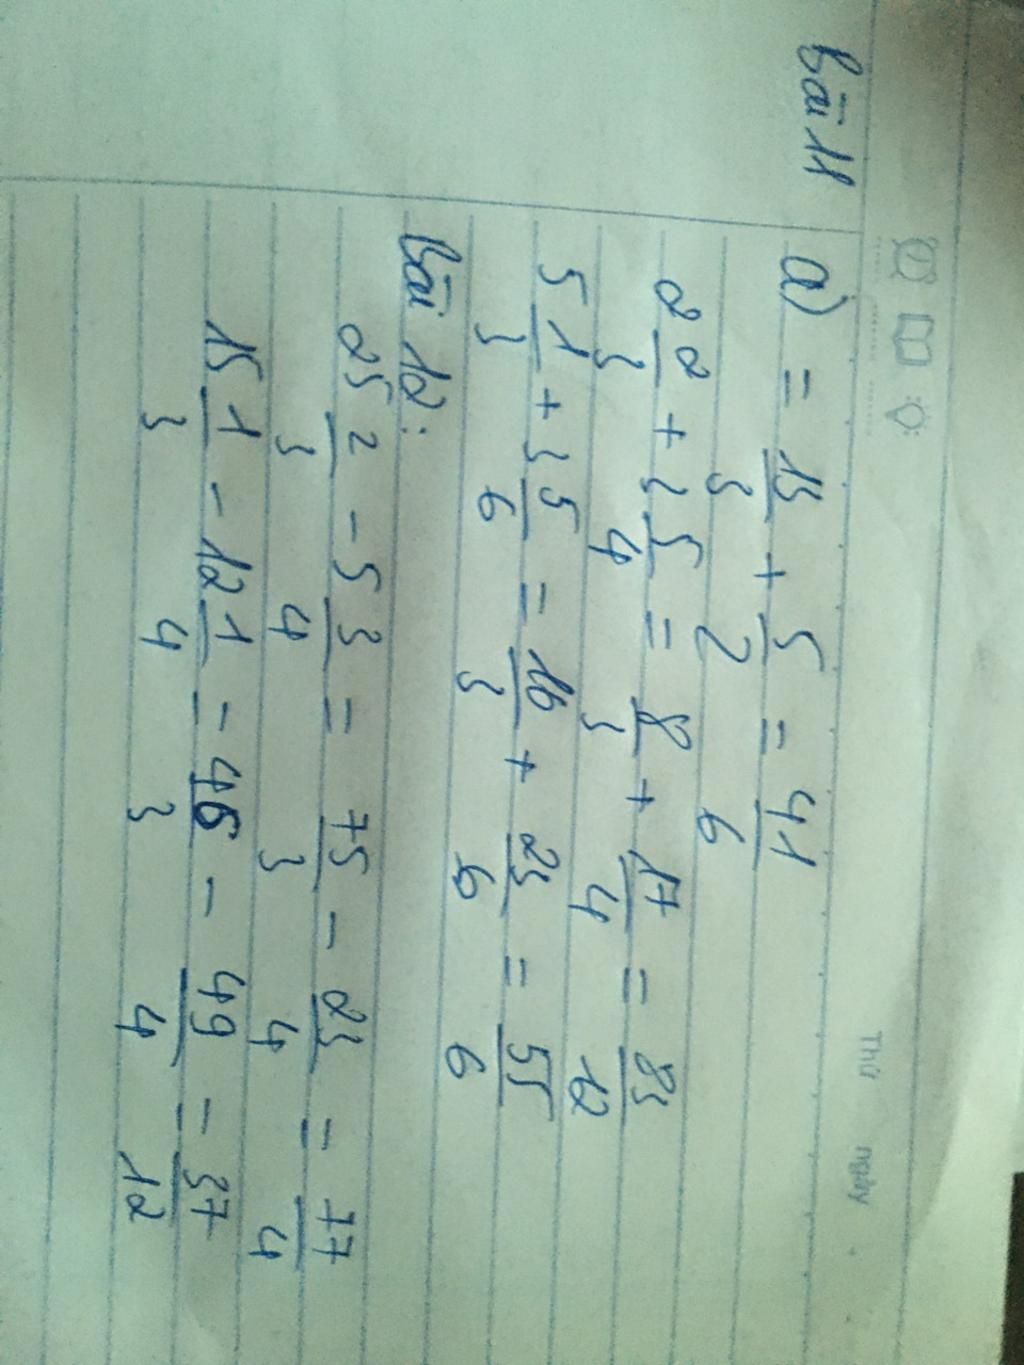 Thứ ngày
Bài 11 a) = 13/3 + 5/2 = 41/6
2 2/3 + 3 5/4 = 8/3 + 17/4 = 83/12
5 1/3 + 3 5/6 = 16/3 + 23/6 = 55/6
Bài 12:
25 2/3 - 5 3/4 = 75/3 - 23/4 = 77/4
15 1/3 - 12 1/4 = 46/3 - 49/4 = 37/12